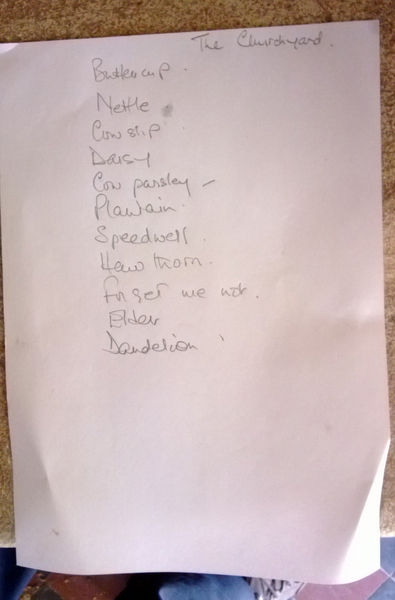 The Churchyard.
Buttercup.
Nettle
Cowslip
Daisy
Cow parsley –
Plantain.
Speedwell.
Hawthorn.
Forget me not.
Elder
Dandelion